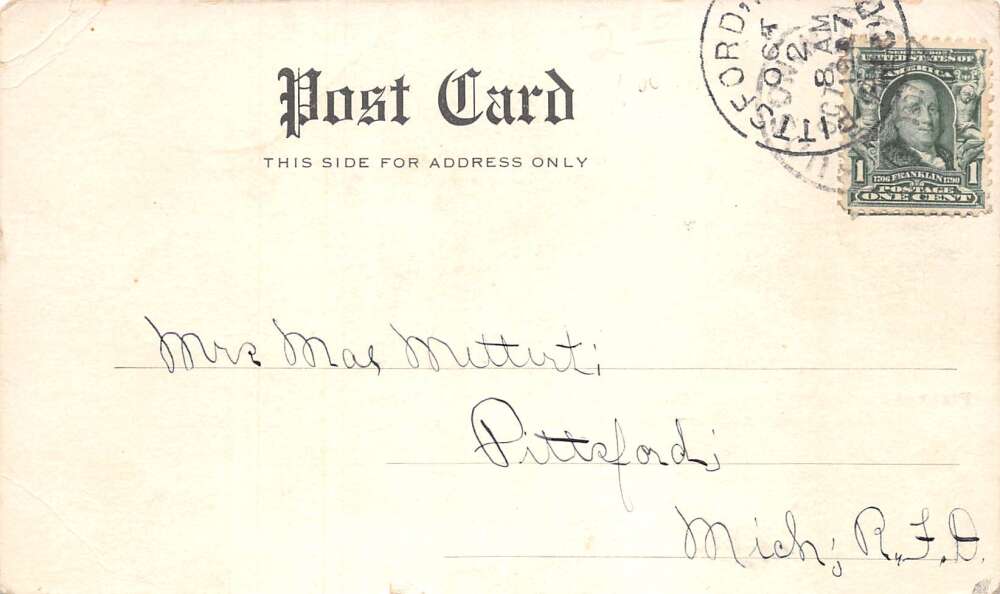 Post Card
THIS SIDE FOR ADDRESS ONLY
PITTSFORD,
OCT
2
8 AM
UNITED STATES OF
AMERICA
1 1706 FRANKLIN 1790 1
POSTAGE
ONE CENT
Mrs Mae Mettert;
Pittsford;
Mich; R.F.D.